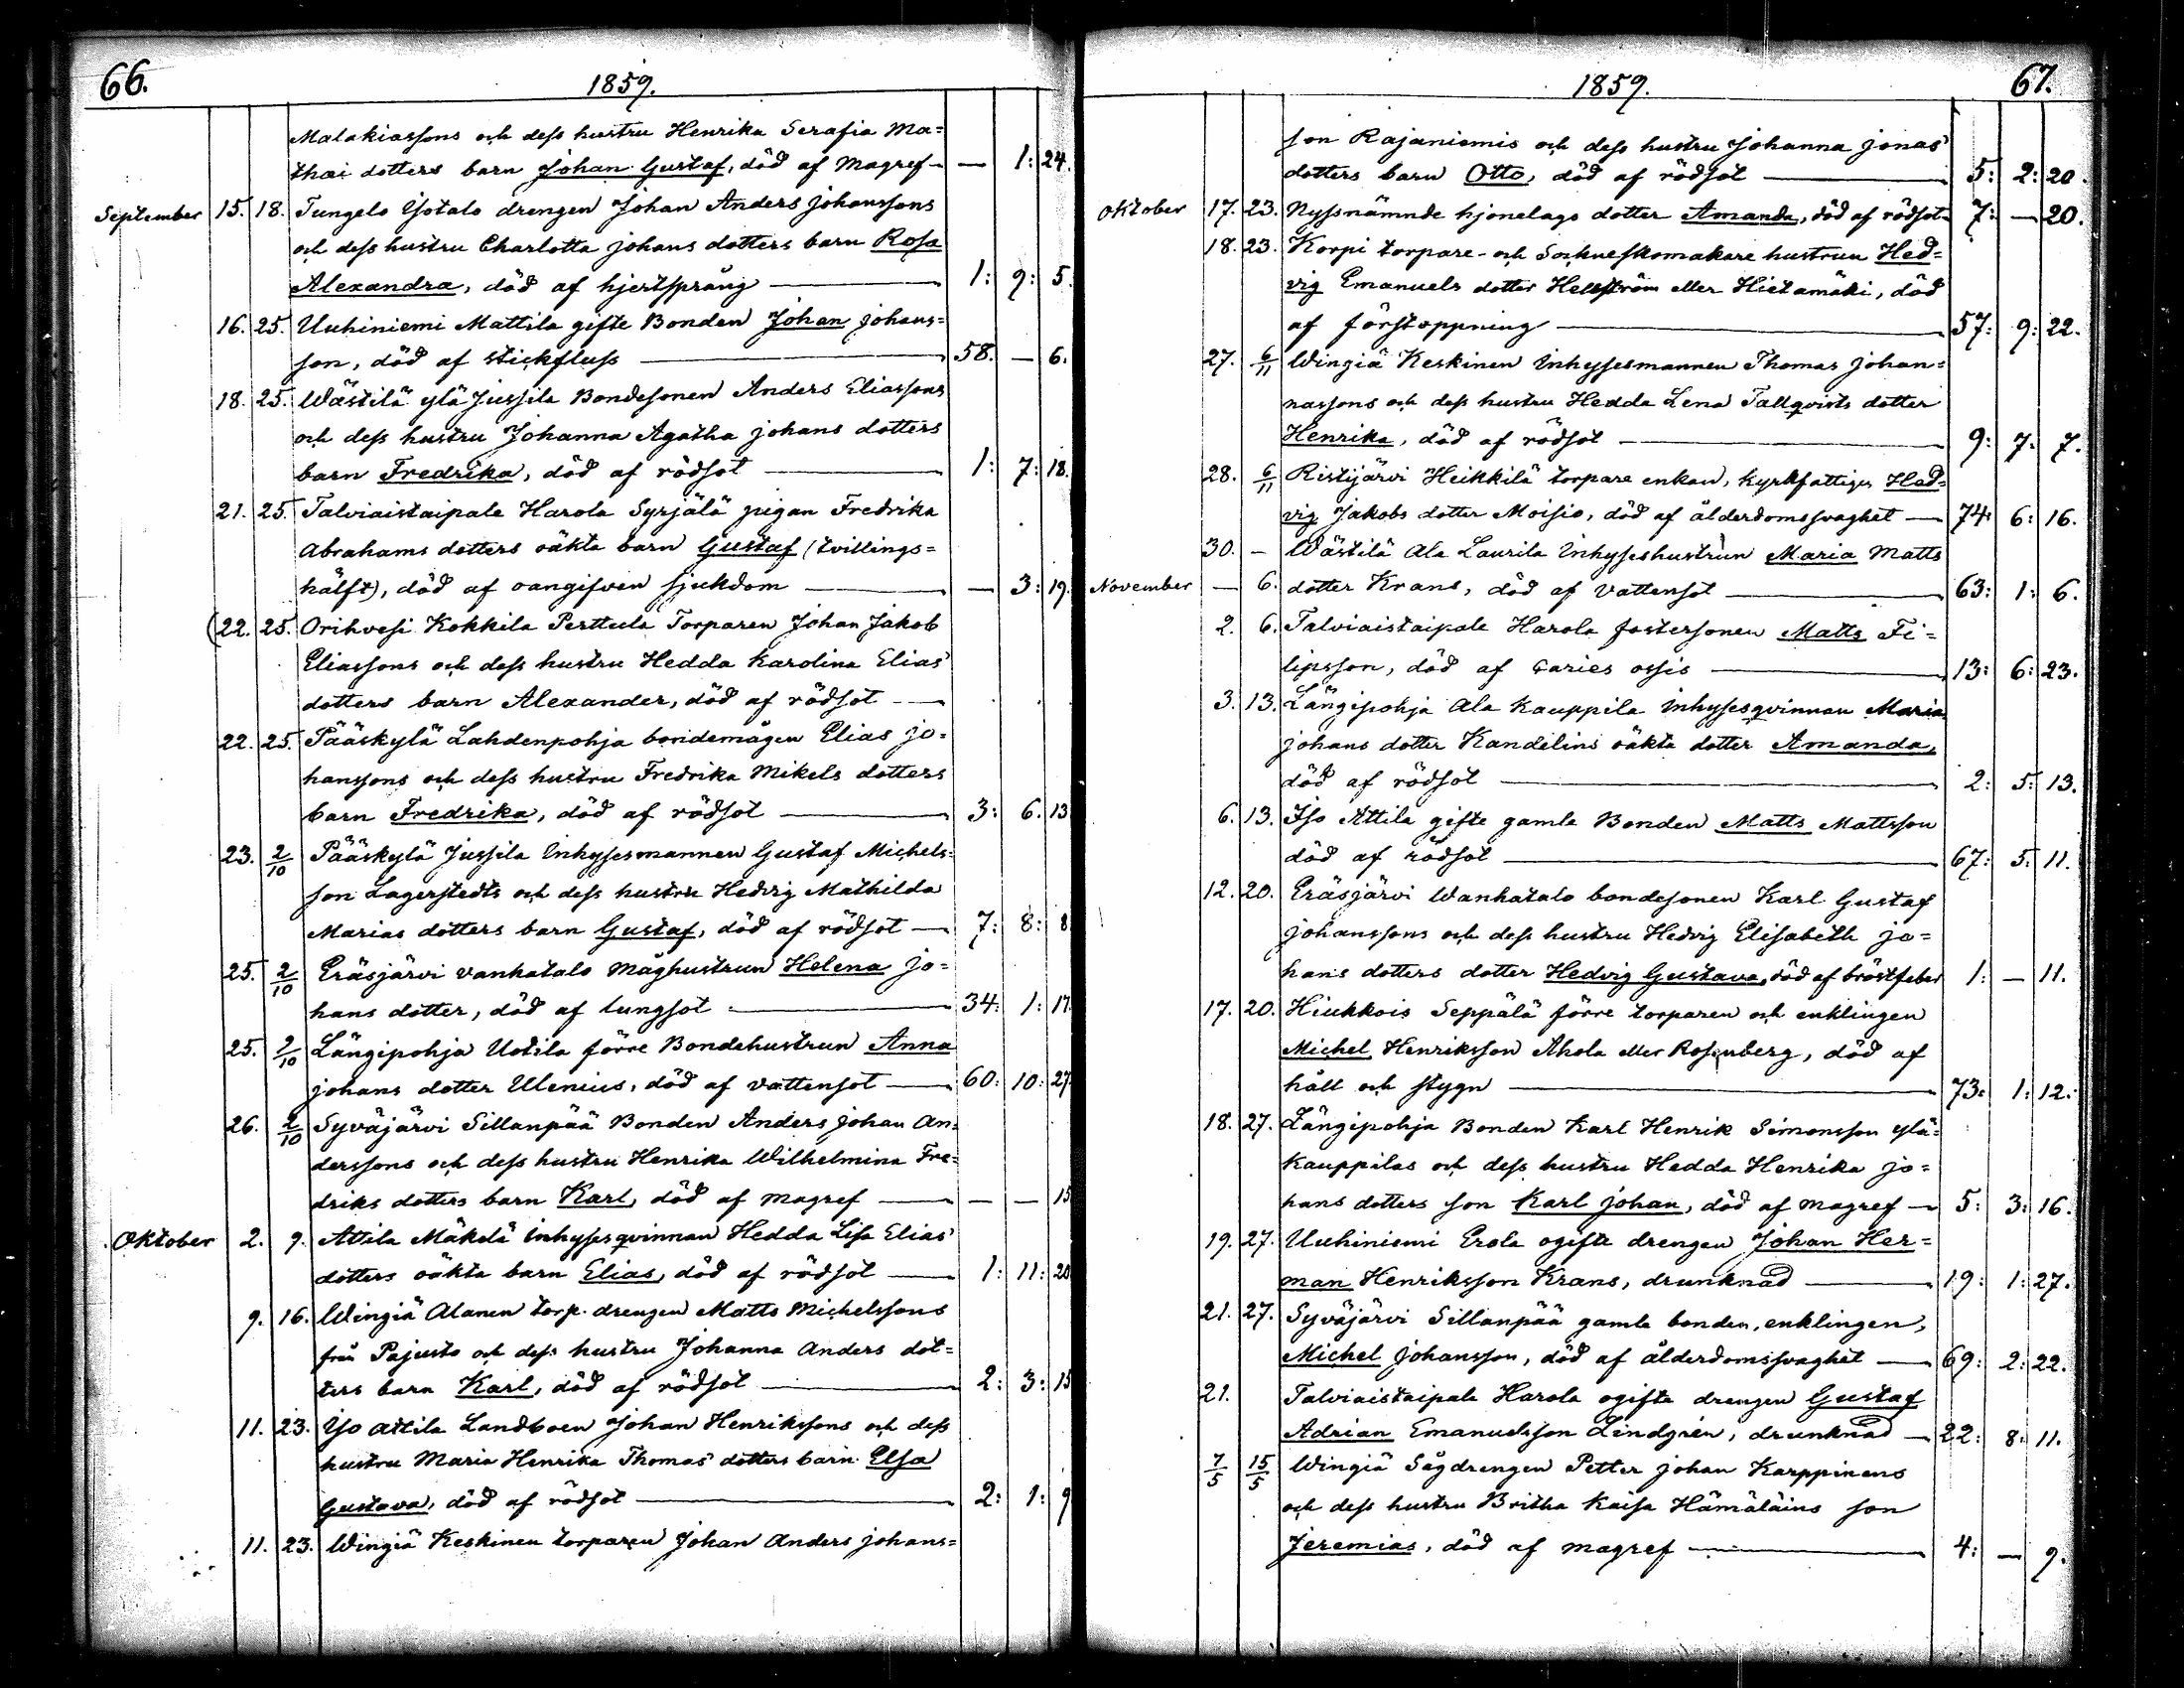 66.
1859.
Malakiassons och dess hustru Henrika Serafia Ma=
thai dotters barn Johan Gustaf, död af magref — — 1: 24.
September 15. 18. Tungelo Yotalo drengen Johan Anders Johanssons
och dess hustru Charlotta Johans dotters barn Rosa
Alexandra, död af hjertsprång — 1: 9: 5.
16. 25. Uuhiniemi Mattila gifte Bonden Johan Johans=
son, död af stickfluss — 58. — 6.
18. 25. Wästilä ylä Jussila Bondesonen Anders Eliassons
och dess hustru Johanna Agatha Johans dotters
barn Fredrika, död af rödsot — 1: 7: 18.
21. 25. Talviaistaipale Harola Syrjälä pigan Fredrika
Abrahams dotters oäkta barn Gustaf (tvillings=
hälft), död af oangifven sjukdom — — 3: 19.
(22. 25. Orihvesi Kokkila Perttula Torparen Johan Jakob
Eliassons och dess hustru Hedda Karolina Elias'
dotters barn Alexander, död af rödsot —
22. 25. Pääskylä Lahdenpohja bondemågen Elias Jo=
hanssons och dess hustru Fredrika Mikels dotters
barn Fredrika, död af rödsot — 3: 6. 13
23. 2/10 Pääskylä Jussila Inhysesmannen Gustaf Michels=
son Lagerstedts och dess hustru Hedvig Mathilda
Marias dotters barn Gustaf, död af rödsot — 7: 8: 8
25. 2/10 Eräsjärvi vanhatalo måghustrun Helena Jo=
hans dotter, död af lungsot — 34: 1: 17
25. 2/10 Längipohja Uotila förre Bondehustrun Anna
Johans dotter Ulenius, död af vattensot — 60: 10: 27.
26. 2/10 Syväjärvi Sillanpää Bonden Anders Johan An=
derssons och dess hustru Henrika Wilhelmina Fre=
driks dotters barn Karl, död af magref — — — 15
Oktober 2. 9. Attila Mäkelä inhysesqvinnan Hedda Lisa Elias'
dotters oäkta barn Elias, död af rödsot — 1: 11: 20
9. 16. Wingiä Alanen torp. drengen Matts Michelssons
från Pajusto och dess hustru Johanna Anders dot=
ters barn Karl, död af rödsot — 2: 3: 15
11. 23. Yso Attila Landboen Johan Henrikssons och dess
hustru Maria Henrika Thomas' dotters barn Elsa
Gustava, död af rödsot — 2: 1: 9
11. 23. Wingiä Keskinen torparen Johan Anders Johans=
1859.
67.
son Rajaniemis och dess hustru Johanna Jonas'
dotters barn Otto, död af rödsot — 5: 2: 20.
Oktober 17. 23. Nyssnämnde hjonelags dotter Amanda, död af rödsot 7: — 20.
18. 23. Korpi torpare- och Sockneskomakare hustrun Hed=
vig Emanuels dotter Hellström eller Hietamäki, död
af förstoppning — 57: 9: 22.
27. 6/11 Wingiä Keskinen Inhysesmannen Thomas Johan=
nassons och dess hustru Hedda Lena Tallqvists dotter
Henrika, död af rödsot — 9: 7: 7.
28. 6/11 Ristijärvi Heikkilä torpare enkan, kyrkfattiga Hed=
vig Jakobs dotter Moisio, död af ålderdomssvaghet — 74: 6: 16.
30. — Wästilä Ala Laurila Inhyseshustrun Maria Matts
November — 6. dotter Krans, död af vattensot — 63: 1: 6.
2. 6. Talviaistaipale Harola fostersonen Matts Fi=
lipsson, död af caries ossis — 13: 6: 23.
3. 13. Längipohja Ala Kauppila Inhysesqvinnan Maria
Johans dotter Kandelins oäkta dotter Amanda,
död af rödsot — 2: 5: 13.
6. 13. Iso Attila gifte gamle Bonden Matts Mattsson
död af rödsot — 67: 5: 11.
12. 20. Eräsjärvi Wanhatalo bondesonen Karl Gustaf
Johanssons och dess hustru Hedvig Elisabeth Jo=
hans dotters dotter Hedvig Gustava, död af bröstfeber 1: — 11.
17. 20. Hiukkois Seppälä förre torparen och enklingen
Michel Henriksson Ahola eller Rosenberg, död af
håll och stygn — 73: 1: 12.
18. 27. Längipohja Bonden Karl Henrik Simonsson ylä=
kauppilas och dess hustru Hedda Henrika Jo=
hans dotters son Karl Johan, död af magref — 5: 3: 16.
19. 27. Uuhiniemi Erola ogifte drengen Johan Her=
man Henriksson Krans, drunknad — 19: 1: 27.
21. 27. Syväjärvi Sillanpää gamle bonden, enklingen,
Michel Johansson, död af ålderdomssvaghet — 69: 2: 22.
21. Talviaistaipale Harola ogifte drengen Gustaf
Adrian Emanuelsson Lindgrén, drunknad — 22: 8: 11.
7/5 15/5 Wingiä Sågdrengen Petter Johan Karppinens
och dess hustru Britha Kaisa Hämäläins son
Jeremias, död af magref — 4: — 9.